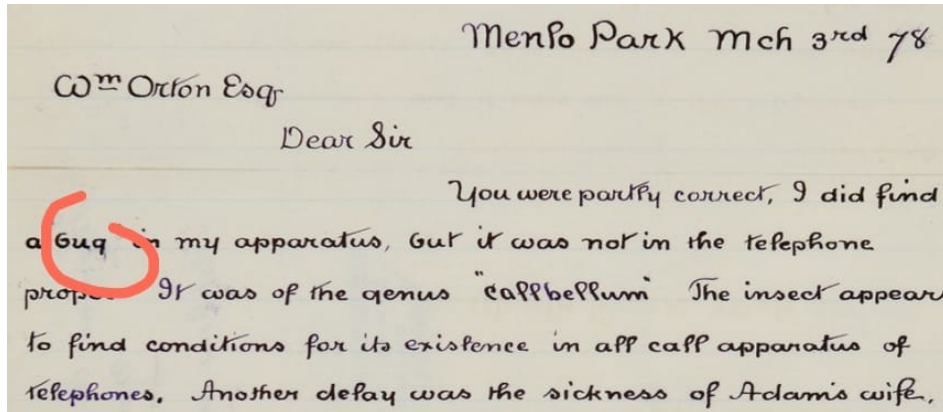 Menlo Park Mch 3rd 78
Wm Orton Esq
Dear Sir
You were partly correct, I did find
a bug in my apparatus, but it was not in the telephone
proper It was of the genus "callbellum" The insect appears
to find conditions for its existence in all call apparatus of
telephones. Another delay was the sickness of Adams wife,